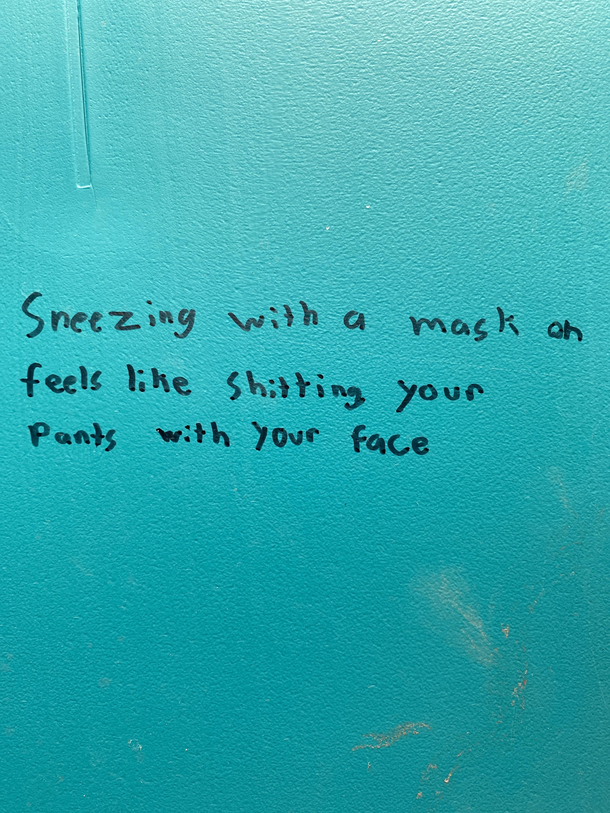 Sneezing with a mask on
feels like shitting your
Pants with your face